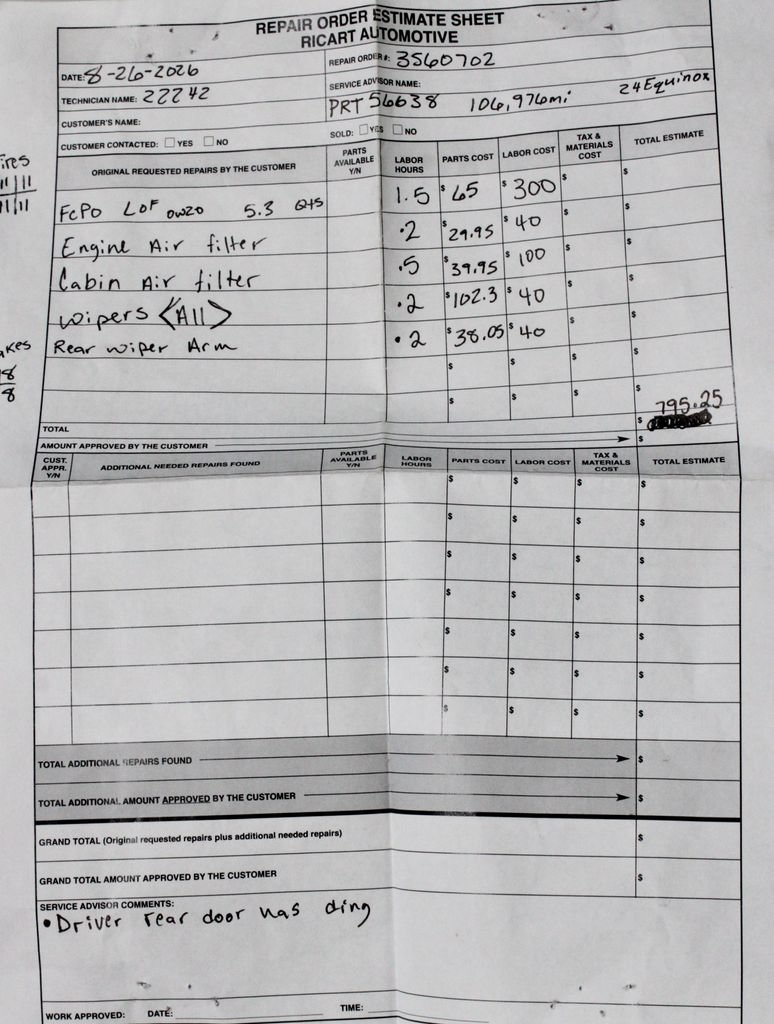 REPAIR ORDER ESTIMATE SHEET
RICART AUTOMOTIVE
DATE: 8-26-2026 REPAIR ORDER #: 3560702
TECHNICIAN NAME: 22242 SERVICE ADVISOR NAME:
PRT 56638 106,976mi 24 Equinox
CUSTOMER'S NAME:
CUSTOMER CONTACTED: YES NO SOLD: YES NO
ORIGINAL REQUESTED REPAIRS BY THE CUSTOMER PARTS AVAILABLE Y/N LABOR HOURS PARTS COST LABOR COST TAX & MATERIALS COST TOTAL ESTIMATE
FcPo LOF 0W20 5.3 Qts 1.5 $ 65 $ 300 $ $
Engine Air filter .2 $ 29.95 $ 40 $ $
Cabin Air filter .5 $ 39.95 $ 100 $ $
wipers <All> .2 $ 102.3 $ 40 $ $
Rear wiper Arm .2 $ 38.05 $ 40 $ $
$ $ $ $
$ $ $ $
TOTAL $ 795.25
AMOUNT APPROVED BY THE CUSTOMER $
CUST. APPR. Y/N ADDITIONAL NEEDED REPAIRS FOUND PARTS AVAILABLE Y/N LABOR HOURS PARTS COST LABOR COST TAX & MATERIALS COST TOTAL ESTIMATE
$ $ $ $
$ $ $ $
$ $ $ $
$ $ $ $
$ $ $ $
$ $ $ $
$ $ $ $
TOTAL ADDITIONAL REPAIRS FOUND $
TOTAL ADDITIONAL AMOUNT APPROVED BY THE CUSTOMER $
GRAND TOTAL (Original requested repairs plus additional needed repairs) $
GRAND TOTAL AMOUNT APPROVED BY THE CUSTOMER $
SERVICE ADVISOR COMMENTS:
• Driver rear door has ding
WORK APPROVED: DATE: TIME: